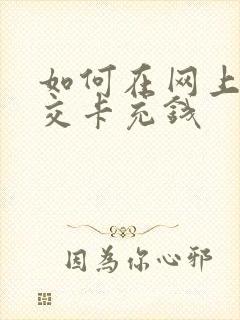 如何在网上
交卡充钱
因為你心邪